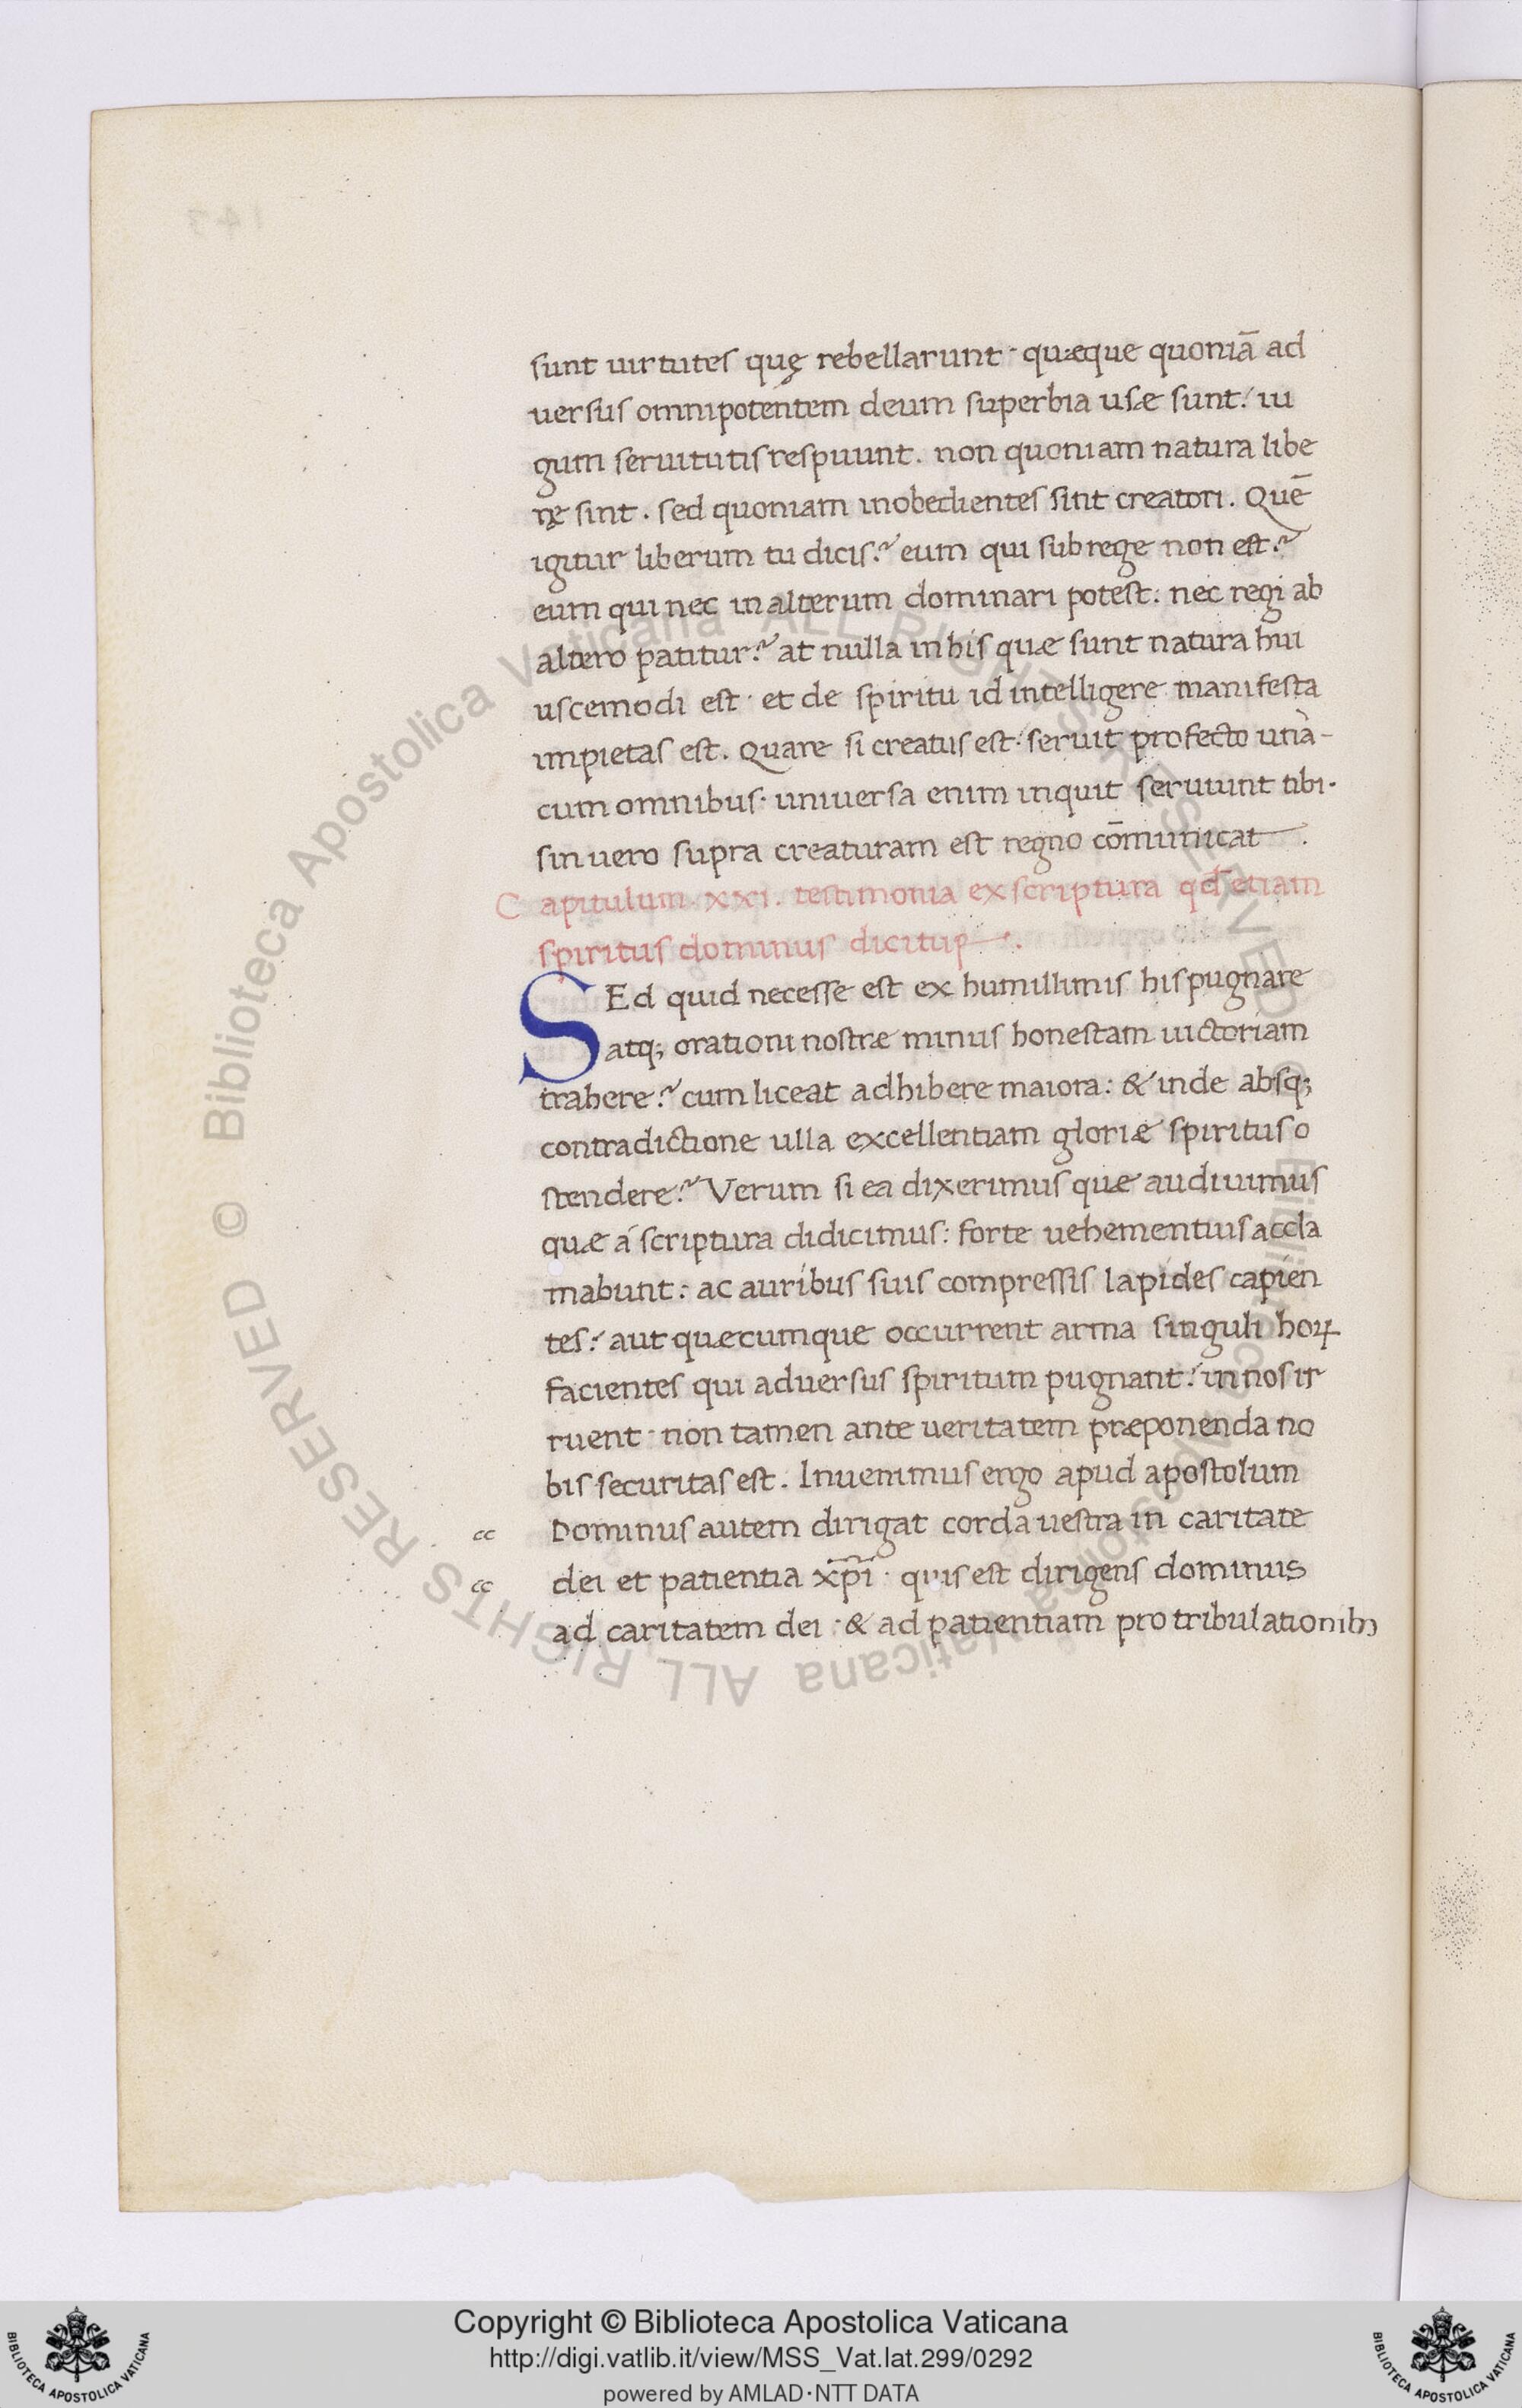 sunt uirtutes quę rebellarunt · quæque quoniā ad
uersus omnipotentem deum superbia usæ sunt: iu
gum seruitutis respuunt. non quoniam natura libe
rę sint. sed quoniam inobedientes sint creatori. Quē
igitur liberum tu dicis? eum qui sub rege non est?
eum qui nec in alterum dominari potest: nec regi ab
altero patitur? at nulla in his quæ sunt natura hui
uscemodi est · et de spiritu id intelligere manifesta
impietas est. Quare si creatus est: seruit profecto unà-
cum omnibus · uniuersa enim inquit seruiunt tibi ·
sin uero supra creaturam est regno cōmunicat.
Capitulum · xxi. testimonia ex scriptura qđ etiam
spiritus dominus dicitur.
SEd quid necesse est ex humillimis his pugnare
atq; orationi nostræ minus honestam uictoriam
trahere? cum liceat adhibere maiora: & inde absq;
contradictione ulla excellentiam gloriæ spiritus o
stendere? Verum si ea dixerimus quæ audiuimus
quæ á scriptura didicimus: forte uehementius accla
mabunt: ac auribus suis compressis lapides capien
tes: aut quæcumque occurrent arma singuli hoꝝ
facientes qui aduersus spiritum pugnant: in nos ir
ruent · non tamen ante ueritatem præponenda no
bis securitas est. Inuenimus ergo apud apostolum
cc Dominus autem dirigat corda uestra in caritate
cc dei et patientia xp̄i · quis est dirigens dominus
ad caritatem dei : & ad patientiam pro tribulationibꝫ
© Biblioteca Apostolica Vaticana ALL RIGHTS RESERVED © Biblioteca Apostolica Vaticana ALL RIGHTS RESERVED
Copyright © Biblioteca Apostolica Vaticana
http://digi.vatlib.it/view/MSS_Vat.lat.299/0292
powered by AMLAD·NTT DATA
BIBLIOTECA APOSTOLICA VATICANA
BIBLIOTECA APOSTOLICA VATICANA